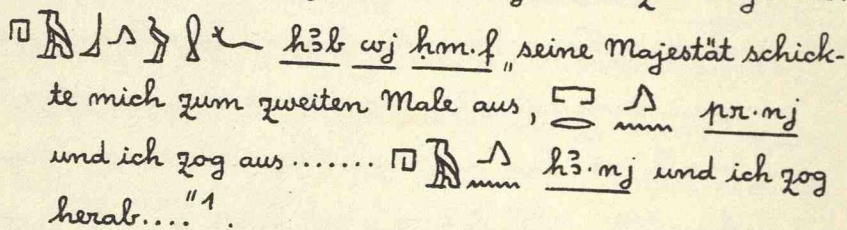 𓉔𓄿𓃀𓂻𓅱𓍛𓆑 hꜣb wj ḥm.f „seine Majestät schick-
te mich zum zweiten Male aus, 𓉐𓂋 𓂻𓈖 pr.nj
und ich zog aus ........ 𓉔𓄿𓂻𓈖 hꜣ.nj und ich zog
herab...."¹.